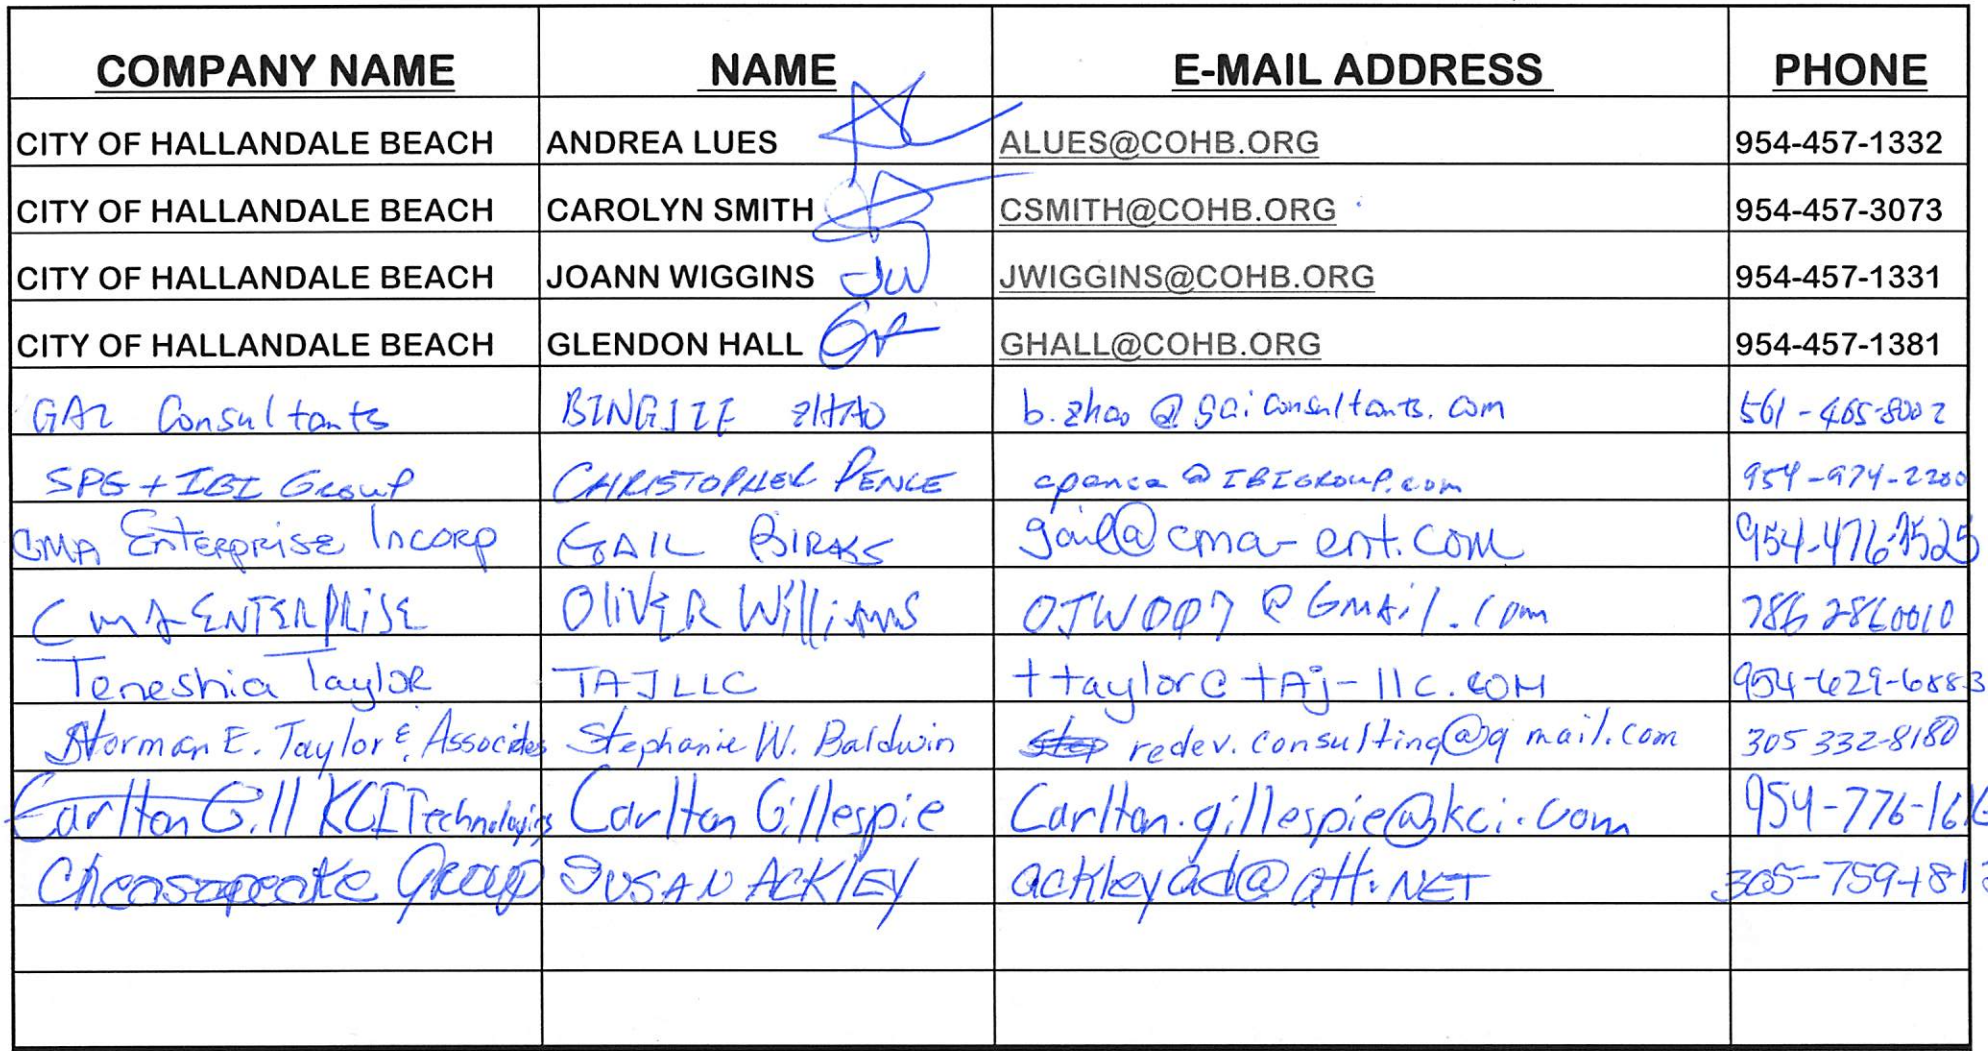 COMPANY NAME NAME E-MAIL ADDRESS PHONE
CITY OF HALLANDALE BEACH ANDREA LUES ALUES@COHB.ORG 954-457-1332
CITY OF HALLANDALE BEACH CAROLYN SMITH CSMITH@COHB.ORG 954-457-3073
CITY OF HALLANDALE BEACH JOANN WIGGINS JW JWIGGINS@COHB.ORG 954-457-1331
CITY OF HALLANDALE BEACH GLENDON HALL GHALL@COHB.ORG 954-457-1381
GAI Consultants BINGJIE ZHAO b.zhao@gaiconsultants.com 561-465-8002
SPG + IBI Group CHRISTOPHER PENCE cpence@IBIGROUP.com 954-974-2200
CMA Enterprise Incorp GAIL BIRKS gail@cma-ent.com 954-476-3525
CMA ENTERPRISE OliVER Williams OJW007@Gmail.com 786 2860010
Teneshia Taylor TAJ LLC ttaylor@tAj-llc.COM 954-629-6883
Norman E. Taylor & Associates Stephanie W. Baldwin redev.consulting@gmail.com 305 332-8180
Carlton Gill KCI Technologies Carlton Gillespie Carlton.gillespie@kci.com 954-776-1616
Cheasapeake Group SUSAN ACKlEY ackleyad@att.NET